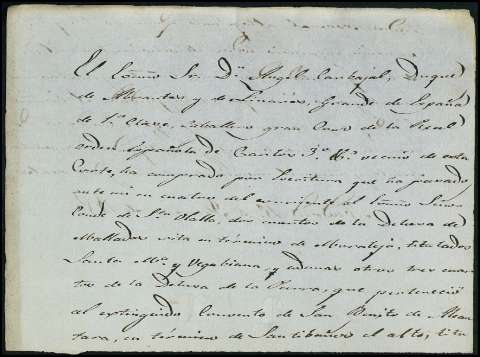 El Excmo Sr. Dn. Angel Carbajal, Duque
de Abrantes y de Linares, Grande de España
de 1a. Clase, Caballero gran Cruz de la Real
orden Española de Carlos 3o. vecino de esta
Corte, ha comprado por Escritura que ha pasado
ante mi en cuatro del corriente al Excmo Señor
Conde de Sta. Olalla, dos cuartos de la Dehesa de
Malladas sita en término de Moraleja, titulados
Santa Ma. y Vegaviana, y ademas otros tres cuar
tos de la Dehesa de la Parra, que perteneció
al extinguido Convento de San Benito de Alcan
tara, en término de Santibañez el alto, titu